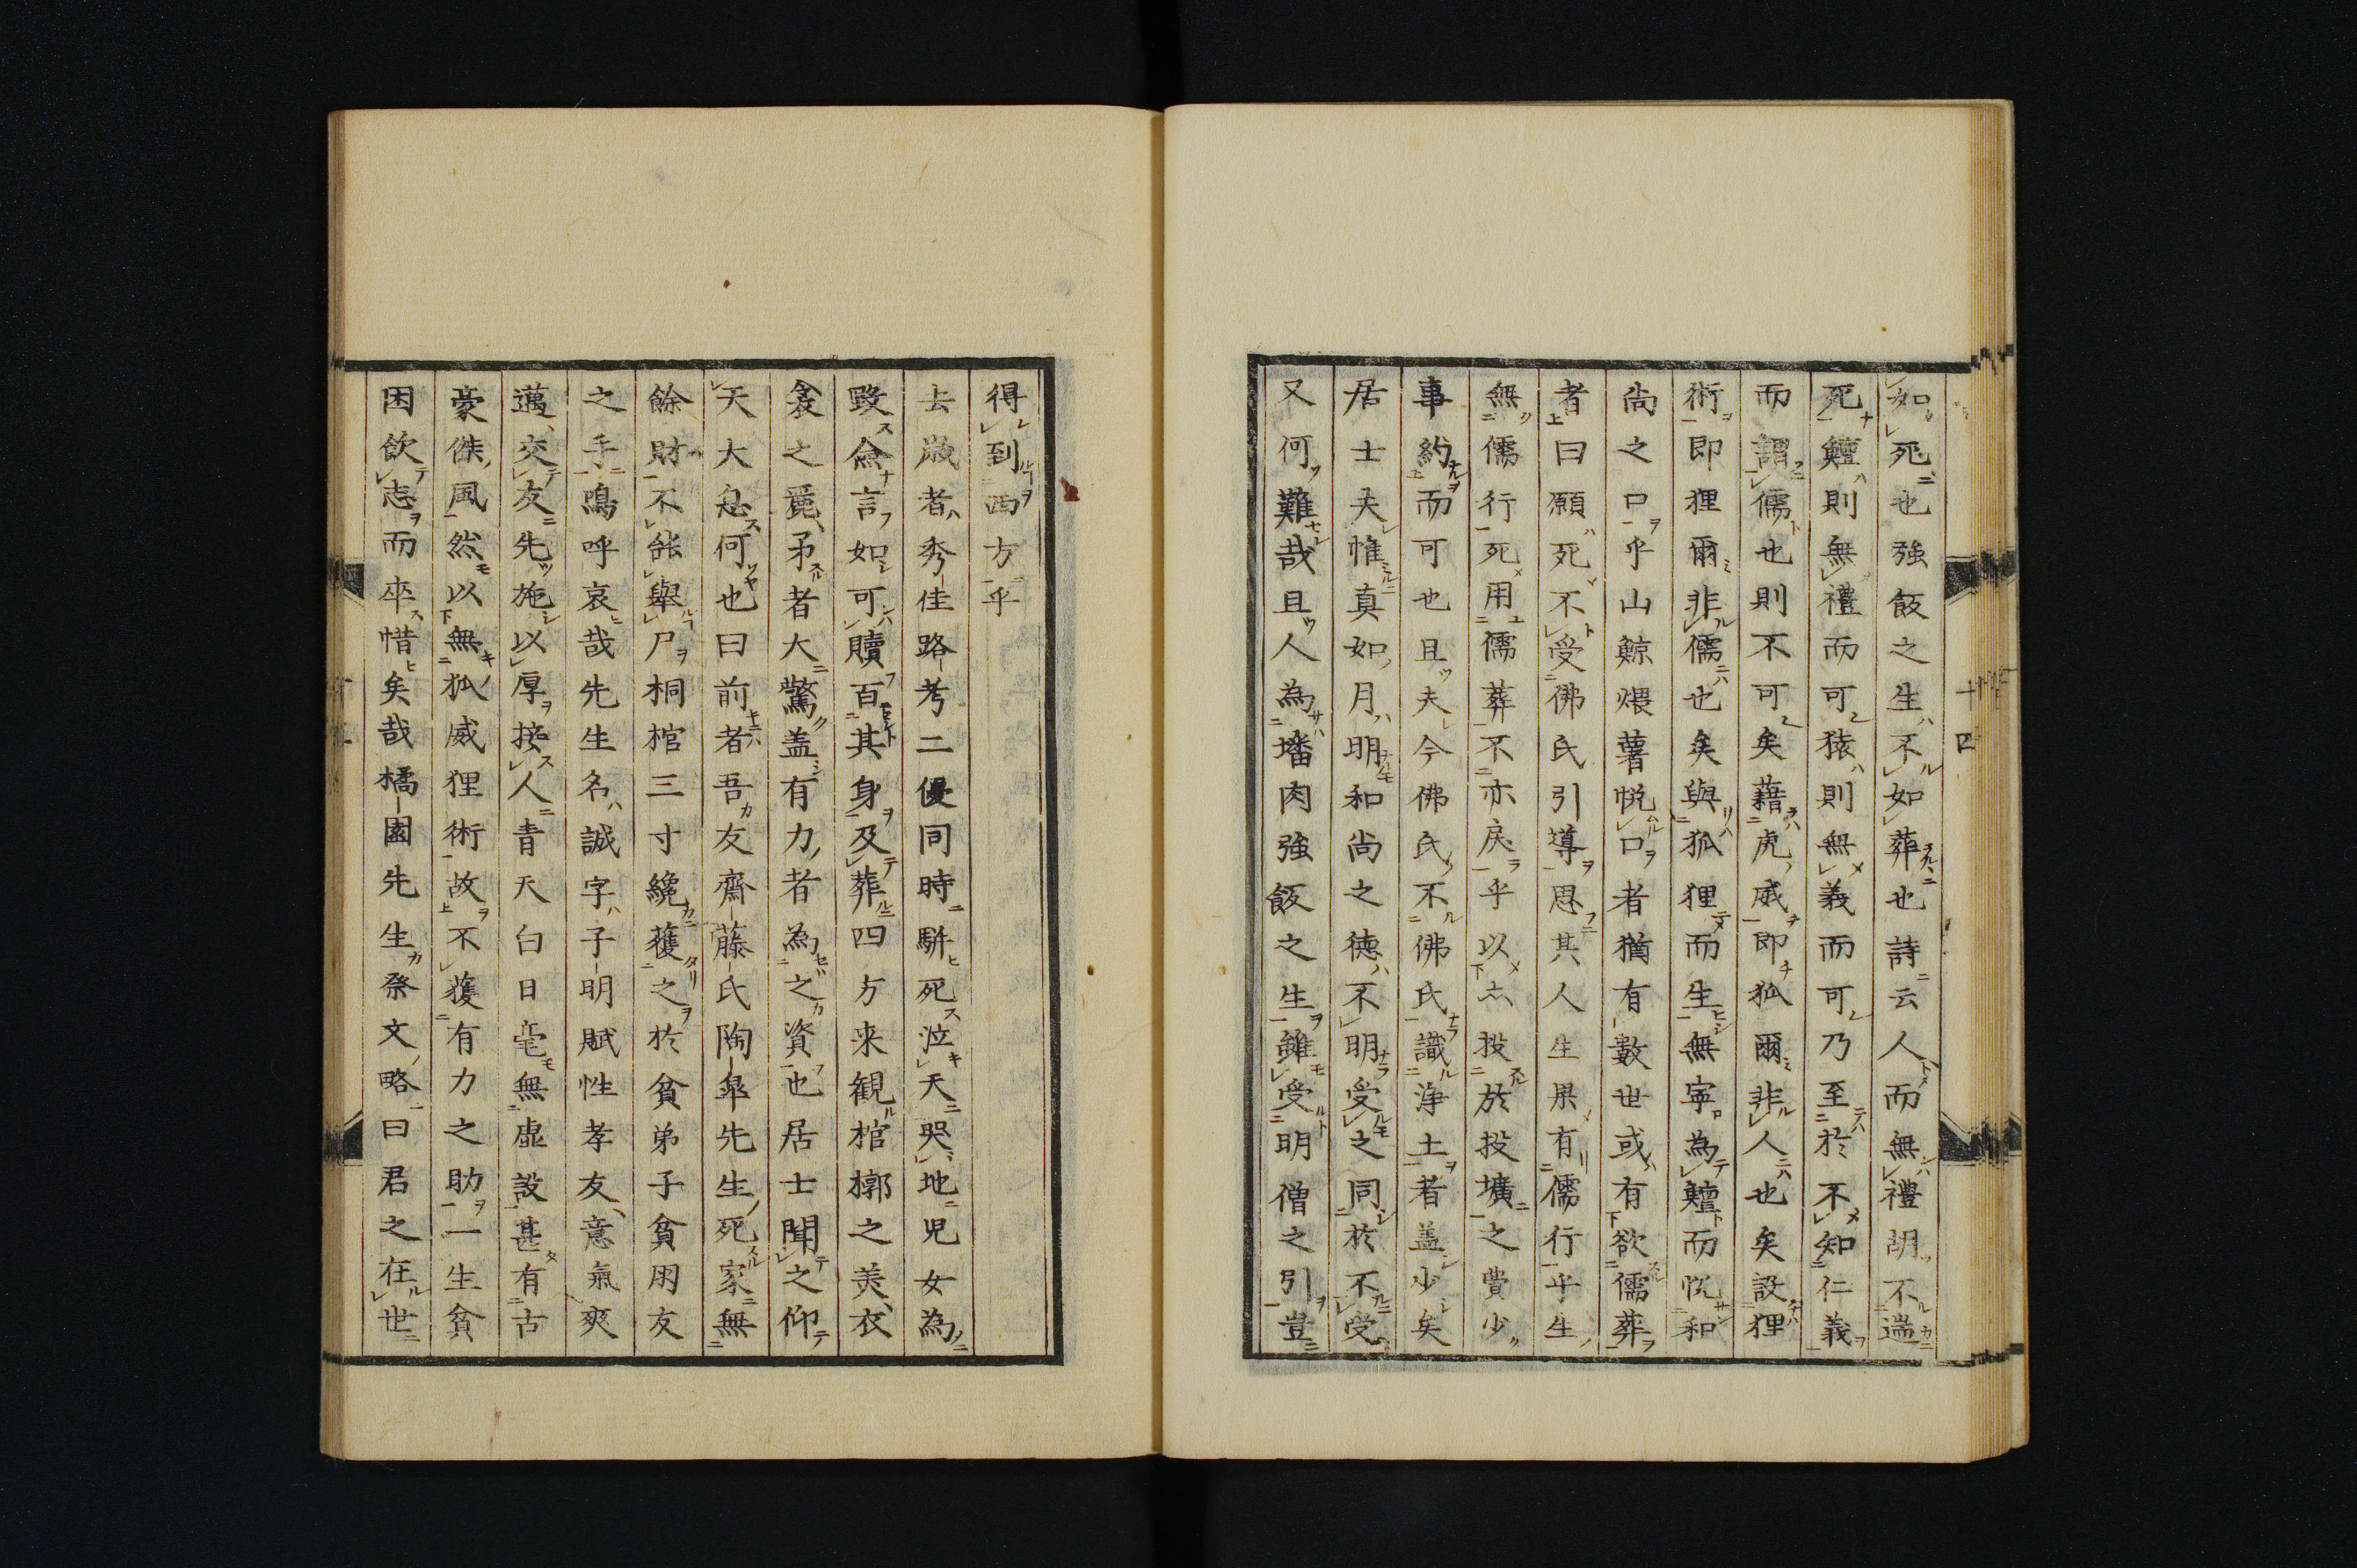 如死也強飯之生不如葬也詩云人而無禮胡不遄
死鱣則無禮而可猿則無義而可乃至於不知仁義
而謂儒也則不可矣藉虎威即狐爾非人也矣設狸
術即狸爾非儒也矣與狐狸而生無寧為鱣而悦和
尚之口乎山鯨煨薯悦口者猶有數世或有欲儒葬
者曰願死不受佛氏引導思其人生果有儒行乎生
無儒行死用儒葬不亦戻乎以亡投於投壙之費少
事約而可也且夫今佛氏不佛氏識浄土者盖少矣
居士夫惟真如月明和尚之徳不明受之同於不受
又何難哉且人為墦肉強飯之生雖受明僧之引豈
十四
得到西方乎
去歳者秀佳路考二優同時駢死泣天哭地児女為
毀僉言如可贖百其身及葬四方来観棺槨之美衣
衾之麗矛者大驚盖有力者為之資也居士聞之仰
天大息何也曰前者吾友齋藤氏陶皐先生死家無
餘財不能舉尸桐棺三寸纔獲之於貧弟子貧朋友
之手嗚呼哀哉先生名誠字子明賦性孝友意氣爽
邁交友先施以厚接人青天白日毫無虚設甚有古
豪傑風然以無狐威狸術故不獲有力之助一生貧
困飲志而卒惜矣哉橘園先生祭文略曰君之在世